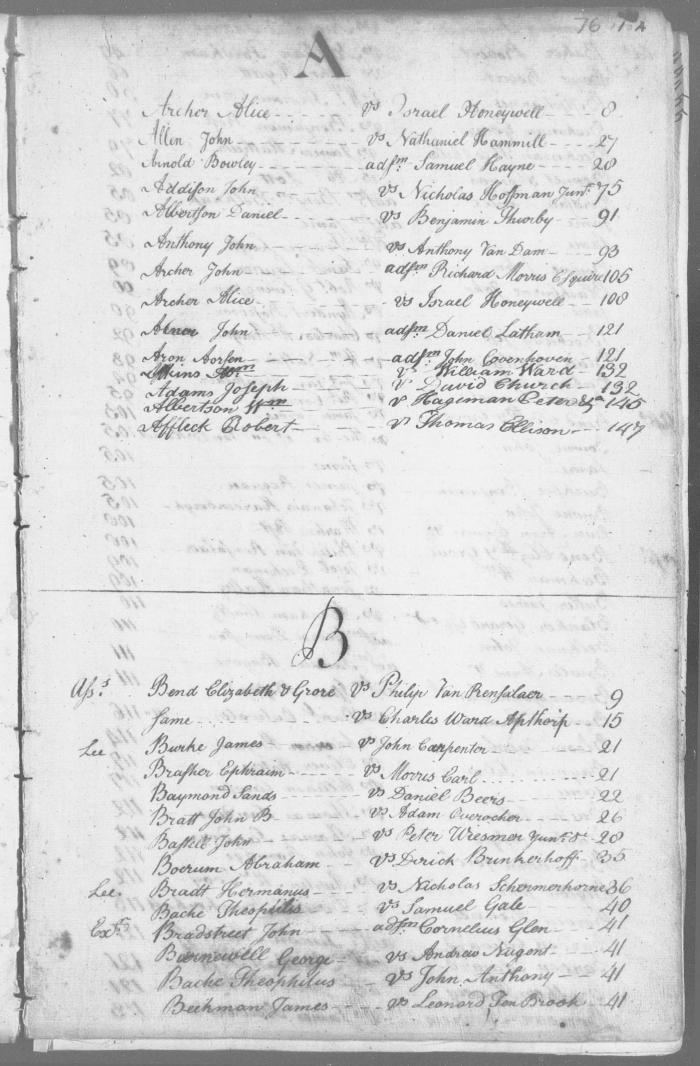 76
A
Archer Alice vs Israel Honeywell 8
Allen John vs Nathaniel Hammill 27
Arnold Bowley adsm Samuel Hayne 28
Addison John vs Nicholas Hoffman Junr. 75
Albertson Daniel vs Benjamin Thurby 91
Anthony John vs Anthony Van Dam 93
Archer John adsm Richard Morris Esquire 105
Archer Alice vs Israel Honeywell 108
John adsm Daniel Latham 121
Aron Aorson adsm John Covenhoven 121
Atkins Wm vs William Ward 132
Adams Joseph v David Church 132
Albertson Wm v Hageman Peter &a 145
Affleck Robert vs Thomas Ellison 147
B
Asss. Bend Elizabeth & Grove vs Philip Van Renssilaer 9
Same vs Charles Ward Apthorp 15
Lee Burke James vs John Carpenter 21
Brasher Ephraim vs Morris Earl 21
Baymond Sands vs Daniel Beers 22
Bratt John B vs Adam Overocher 26
Bassell John vs Peter Wiesmer Junr. & 28
Boerum Abraham vs Dirick Brinkerhoff 35
Lee Bradt Hermanus vs Nicholas Schermerhorne 36
Bache Theophilis vs Samuel Gale 40
Exrs. Bradstreet John adsm Cornelius Glen 41
Barnewill George vs Andrew Nugent 41
Bache Theophilus vs John Anthony 41
Beekman James vs Leonard Ten Brook 41